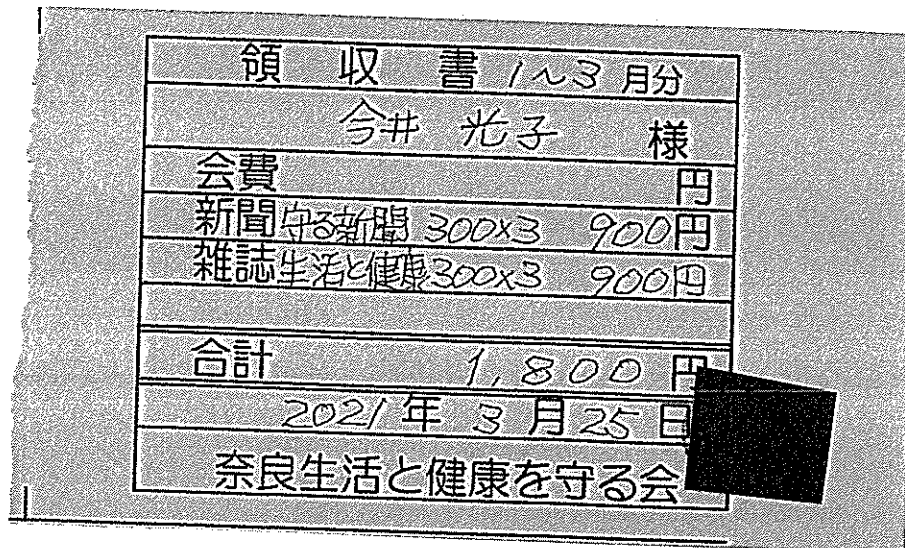 領収書 1～3月分
今井 光子 様
会費 円
新聞 守る新聞 300×3 900円
雑誌 生活と健康 300×3 900円
合計 1,800円
2021年3月25日
奈良生活と健康を守る会